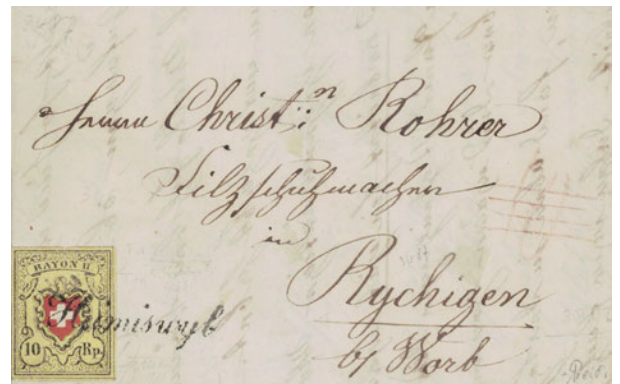 Herrn Christ:n Rohrer
Filzschuhmacher
in
Rychigen
by Worb
RAYON II
Heimiswyl
10 Rp.